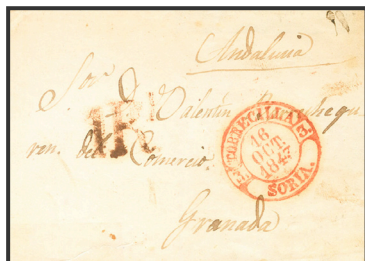 Andalucia
Sor
D Valentin
1R
ren. del Comercio.
TORRECALLVA 3
16
OCT.
1847
SORIA.
Granada